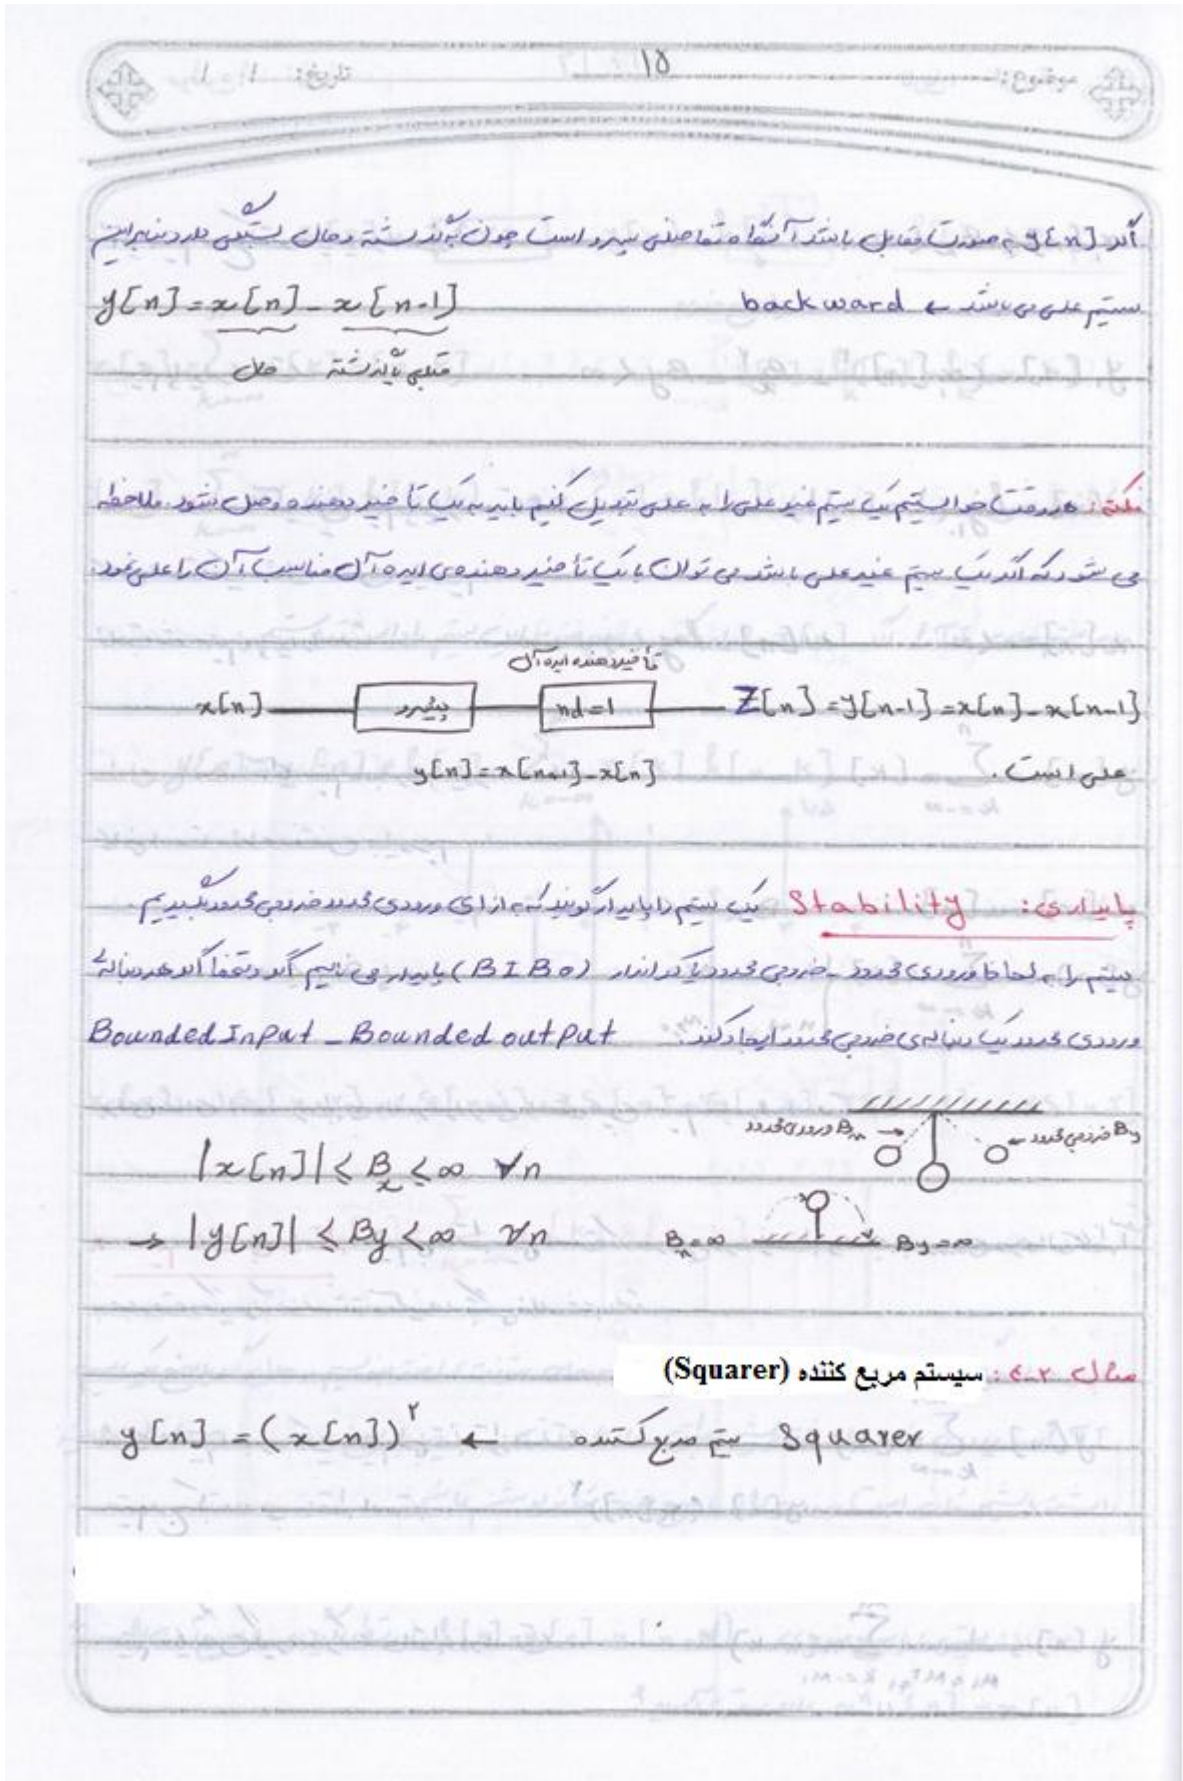 موضوع: ۱۵ تاریخ: / /
اگر y[n] به صورت مقابل باشد آنگاه تفاضلی پسرو است چون به گذشته و حال بستگی دارد بنابراین
سیستم علی می باشد ← backward y[n] = x[n] - x[n-1]
حال قبلی یا گذشته
نکته: هر وقت خواستیم یک سیستم غیر علی را به علی تبدیل کنیم باید به یک تأخیر دهنده وصل شود. ملاحظه
می شود که اگر یک سیستم غیر علی باشد می توان با یک تأخیر دهنده ی ایده آل مناسب آن را علی نمود.
تأخیر دهنده ایده آل
x[n] پیشرو nd=1 Z[n] = y[n-1] = x[n] - x[n-1]
y[n] = x[n+1] - x[n] علی است.
پایداری: Stability یک سیستم را پایدار گویند که به ازای ورودی محدود خروجی محدود بگیریم.
سیستم را به لحاظ ورودی محدود - خروجی محدود یا کراندار (BIBO) پایدار می نامیم اگر و فقط اگر هر دنباله ی
ورودی محدود یک دنباله ی خروجی محدود ایجاد کند. Bounded Input - Bounded output
ورودی محدود Bx خروجی محدود By
|x[n]| ≤ Bx ≤ ∞ ∀n
→ |y[n]| ≤ By < ∞ ∀n Bx=∞ By=∞
مثال ۲-۴: سیستم مربع کننده (Squarer)
Squarer سیستم مربع کننده ← y[n] = (x[n])²